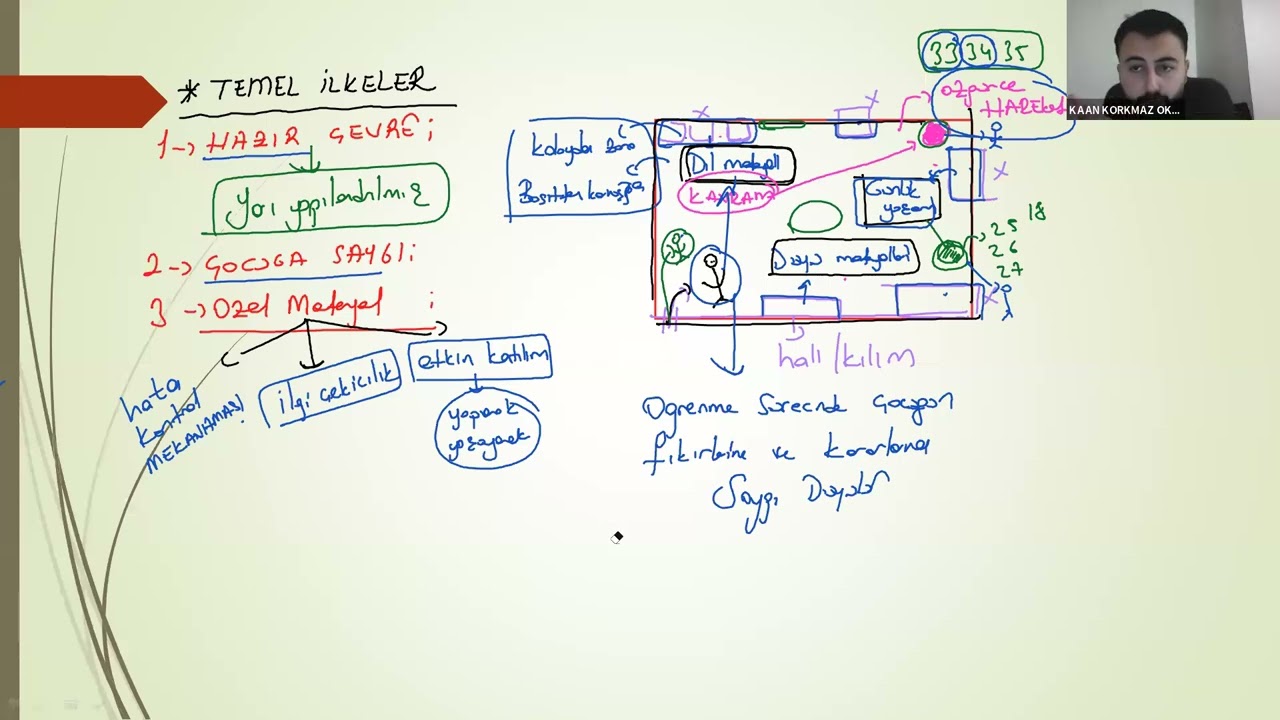 * TEMEL İLKELER
1-> HAZIR ÇEVRE;
Yarı yapılandırılmış
2-> ÇOCUĞA SAYGI;
3 -> Özel Materyal ;
hata
kontrol
MEKANİZMASI
ilgi çekicilik
etkin katılım
yaparak
yaşayarak
33 34 35
özgürce
HAREKET
KAAN KORKMAZ OK...
x
x
Kolaydan zora
Basitten karmaşığa
Dil materyali
KAVRAM
Günlük
yaşam
x
25 18
26
27
Duyu materyalleri
x
halı/kilim
Öğrenme Sürecinde Çocuğun
fikirlerine ve kararlarına
Saygı Duyulur